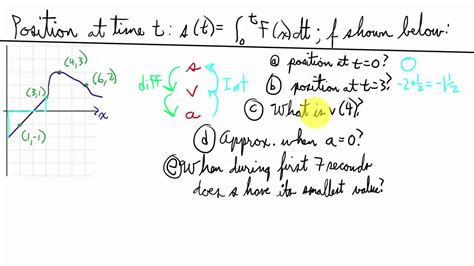 Position at time t: s(t) = ∫₀ᵗ F(x)dt ; f shown below:
(4,3)
(6,2)
(3,1)
(1,-1)
x
diff
s
v
a
Int
ⓐ position at t=0? 0
ⓑ position at t=3? -2+½=-1½
ⓒ What is v(4)?
ⓓ Approx. when a=0?
ⓔ When during first 7 seconds
does s have its smallest value?